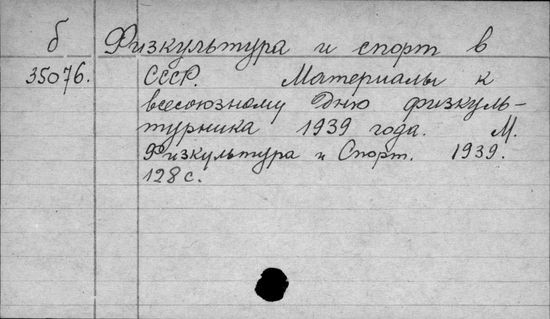 б Физкультура и спорт в
35076. СССР. Материалы к
всесоюзному Дню физкуль-
турника 1939 года. М.
Физкультура и Спорт. 1939.
128 с.